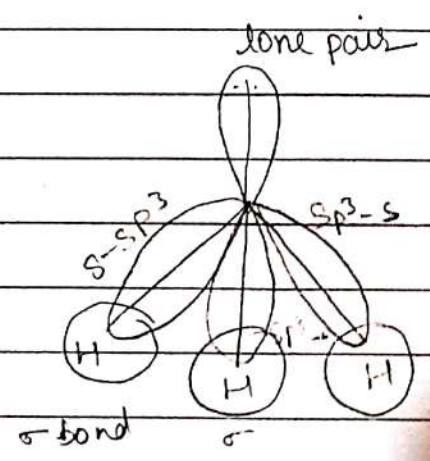 lone pair
S-SP³
SP³-S
H
H
H
σ bond
σ-